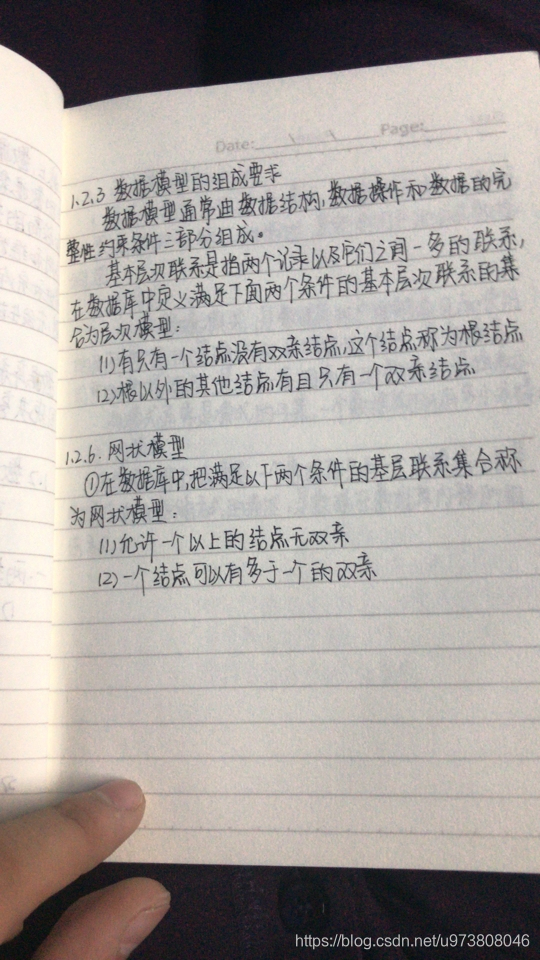 Date:
Page:
1.2.3 数据模型的组成要求
数据模型通常由数据结构,数据操作和数据的完
整性约束条件三部分组成。
基本层次联系是指两个记录以及它们之间一多的联系,
在数据库中定义满足下面两个条件的基本层次联系的集
合为层次模型:
(1)有只有一个结点没有双亲结点,这个结点称为根结点
(2)根以外的其他结点有且只有一个双亲结点
1.2.6.网状模型
①在数据库中,把满足以下两个条件的基层联系集合称
为网状模型:
(1)允许一个以上的结点无双亲
(2)一个结点可以有多于一个的双亲
https://blog.csdn.net/u973808046